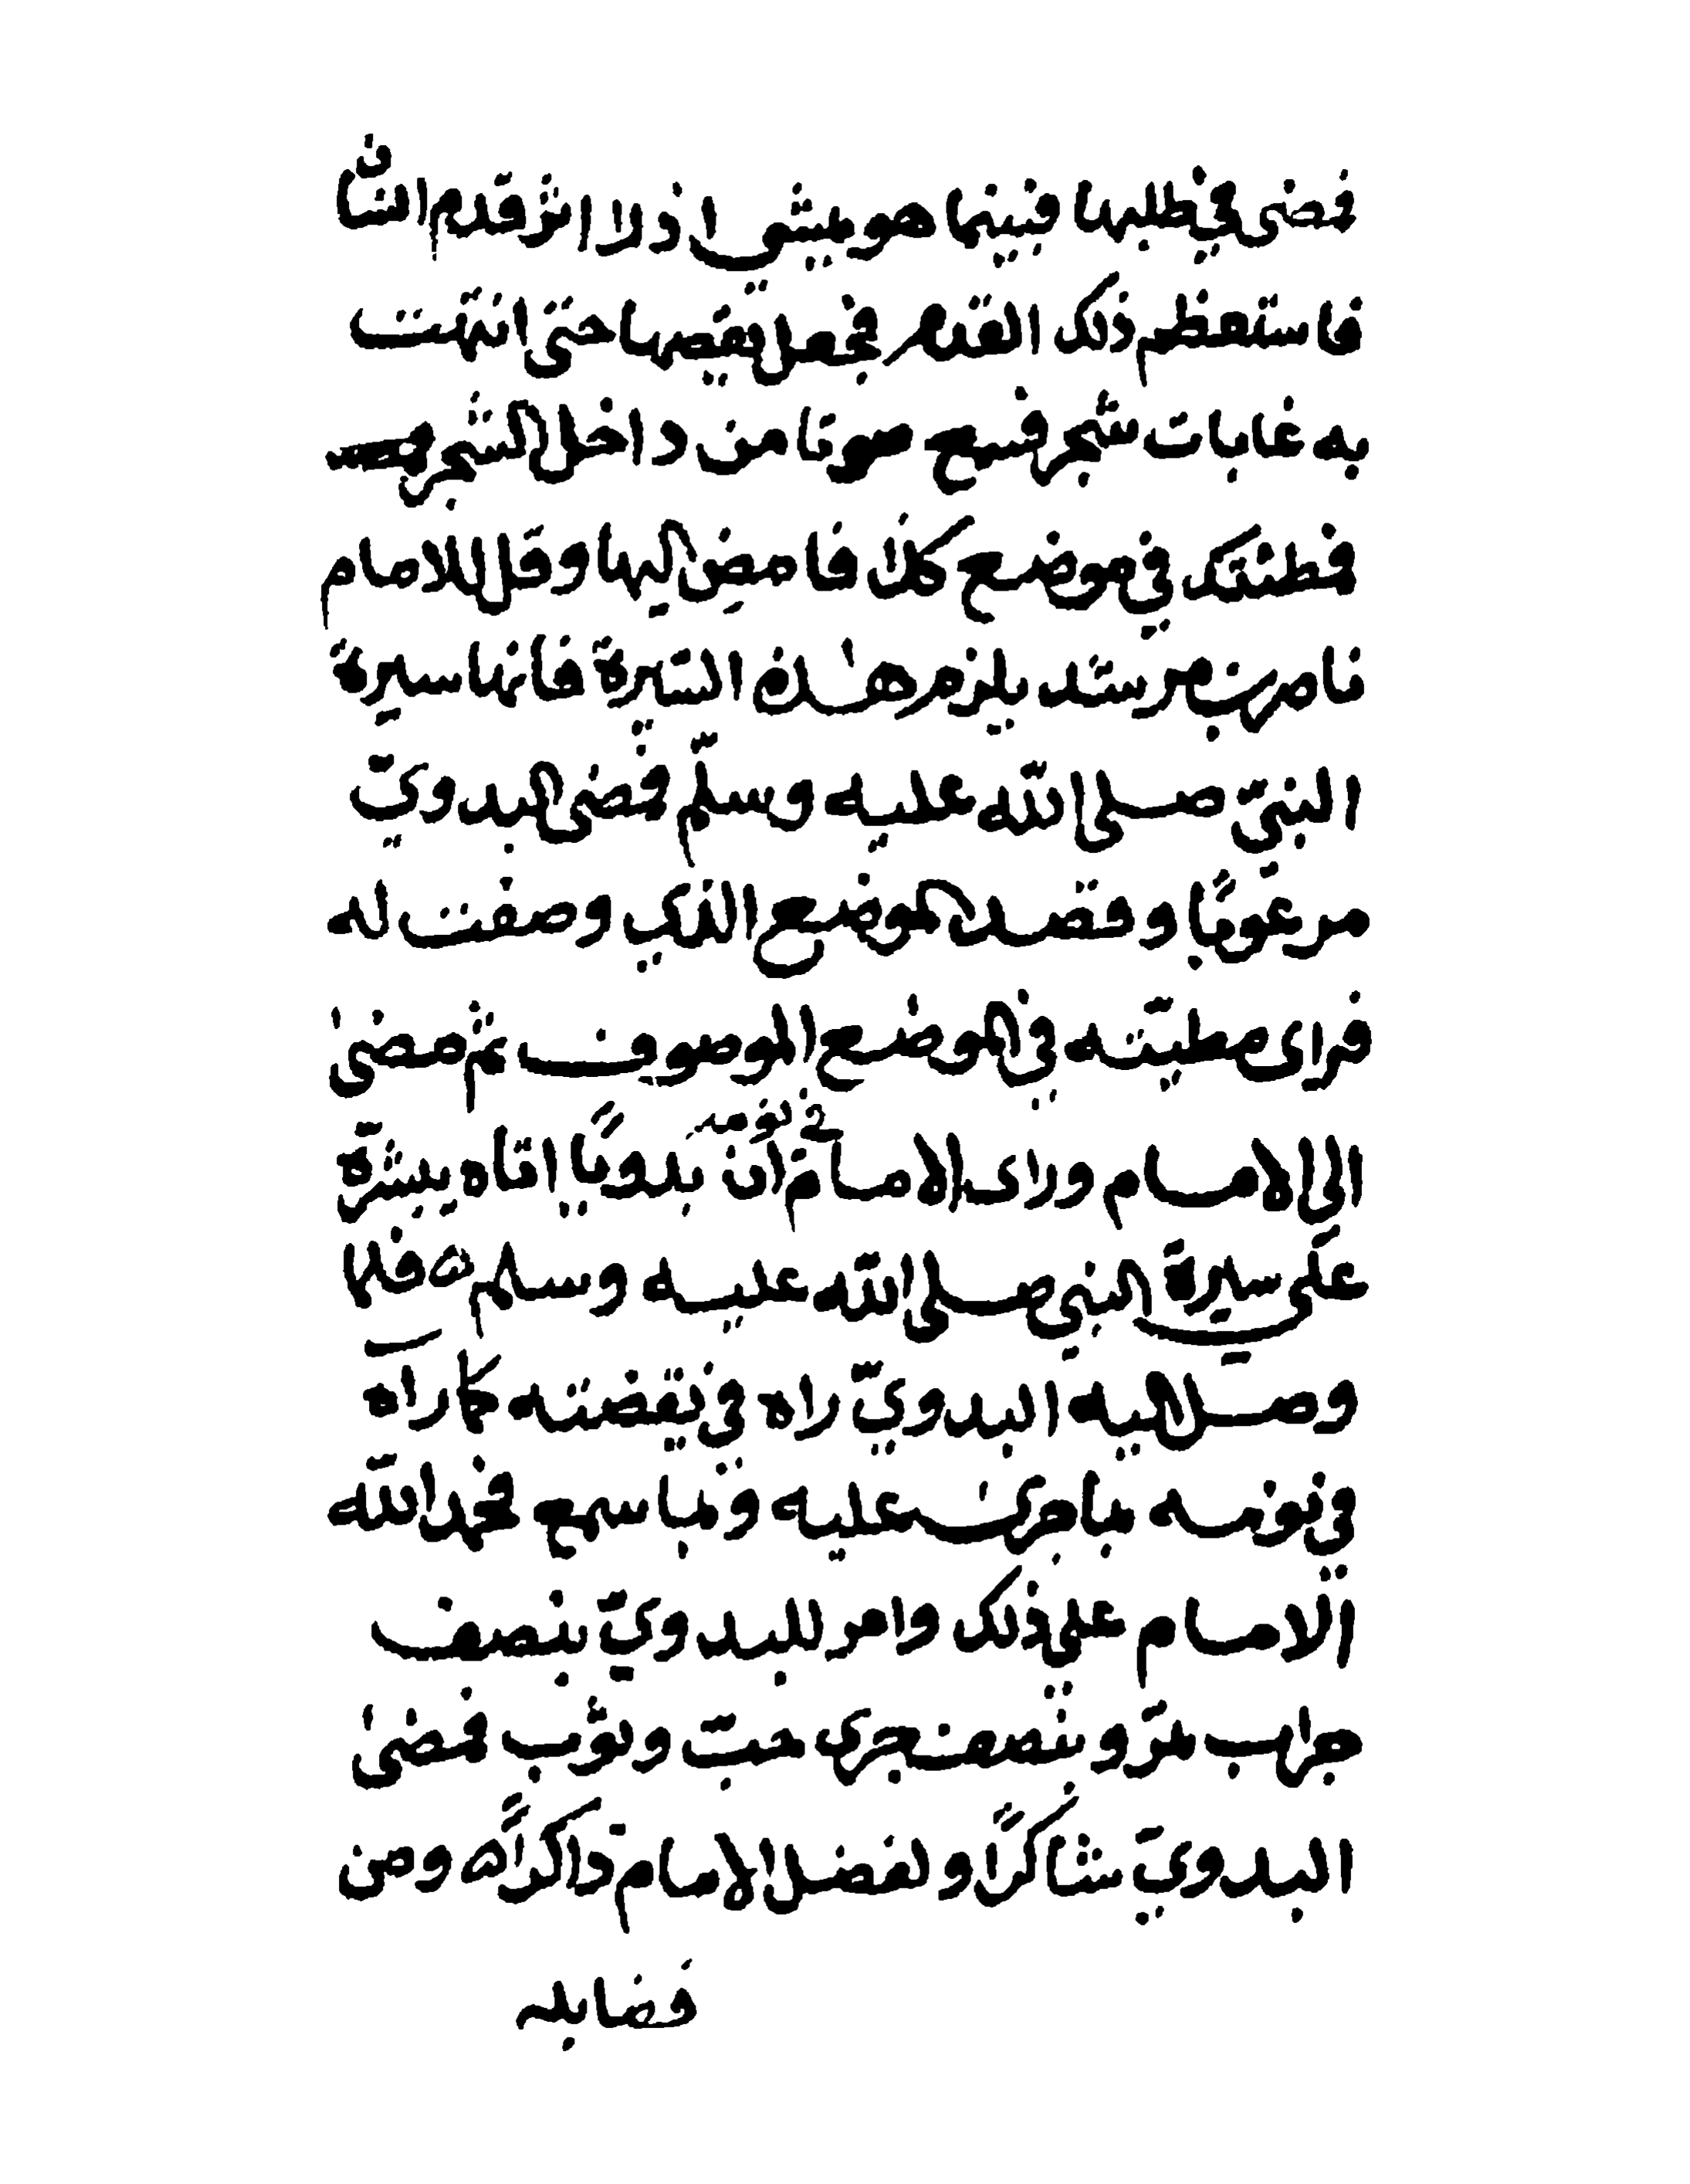 فمضى في طلبها فبينما هو يمشي اذ لا اثر قدم انسان
فاستعظم ذلك القدم فجعل يقصها حتى انتهت
به غابات شجر فسمع صوتا من داخل الشجر
فطئتك في موضع كذا فامض اليها وقل للامام
ناصر بن مرشد يلزم هذه السّيرة فانها سيرة
النبيّ صلى الله عليه وسلّم فمضى البدويّ
مرعوبًا وقصد الموضع الذي وصفت له
فراى مطيّته في الموضع الموصوف ثم مضىٰ
الى الامام وراى الامام في نومه انّ بدويًا اتاه يبشرّه
على سيرة النبي صلى الله عليه وسلم ه فلما
وصل اليه البدويّ راه في يقضته كما راه
في نومه بما جرى عليه وبما سمع فحمد الله
الامام على ذلك وامر للبدويّ بنصف
جراب تمرّ ونصف جرى حبّ وثوب فمضىٰ
البدويّ شاكرًا ولفضل الامام ذاكرًا ه ومن
فضايله